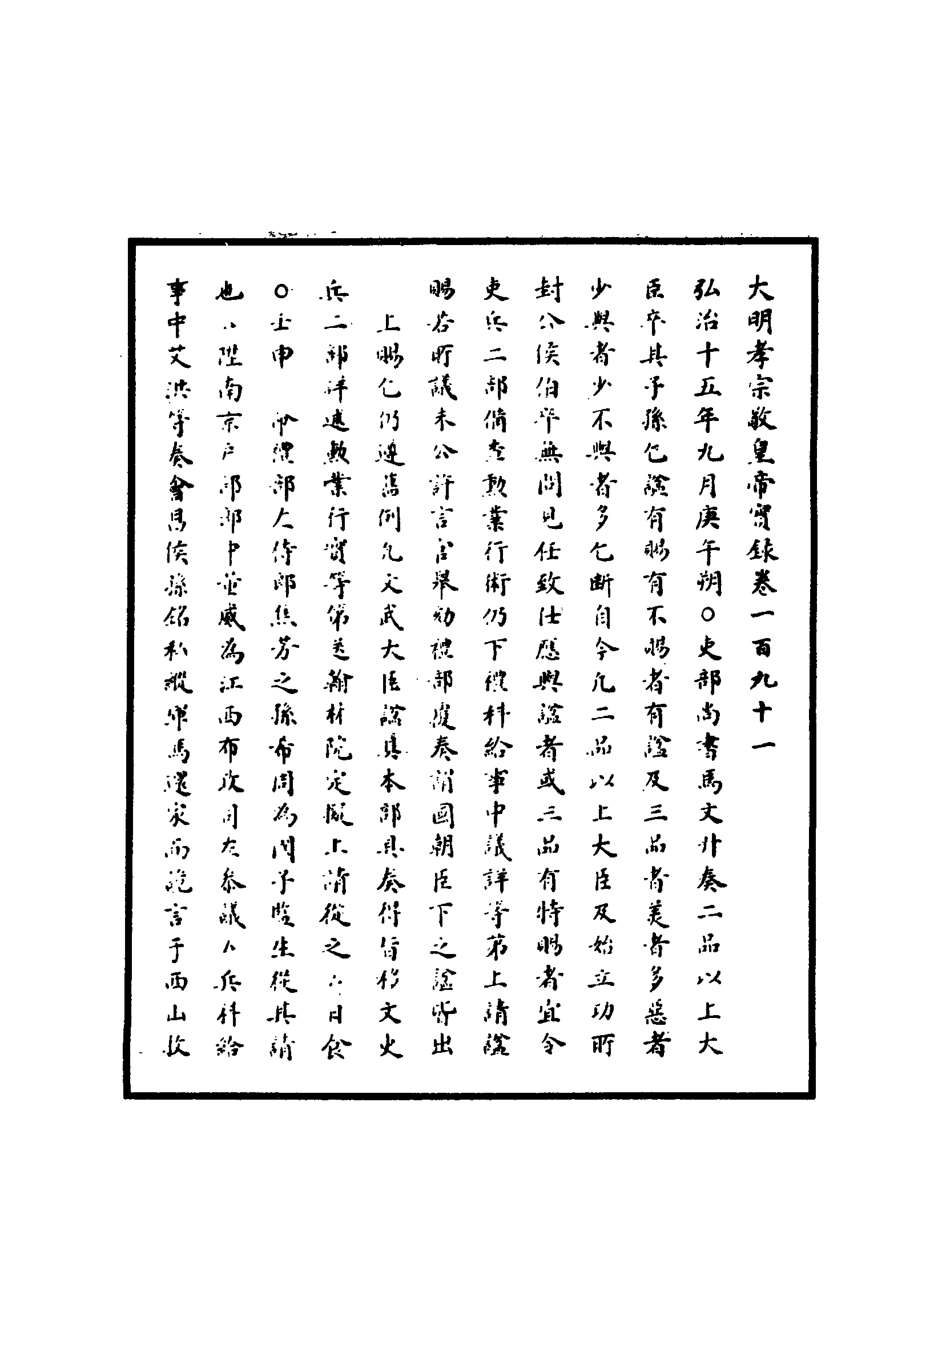 大明孝宗敬皇帝實錄卷一百九十一
弘治十五年九月庚午朔○吏部尚書馬文升奏二品以上大
臣卒其子孫乞諡有賜有不賜者有諡及三品者美者多惡者
少與者少不與者多乞斷自今凡二品以上大臣及始立功所
封公侯伯卒無問見任致仕應與諡者或三品有特賜者宜令
吏兵二部備查勳業行術仍下禮科給事中議詳等第上請諡
賜若所議未公許言官舉劾禮部覆奏謂國朝臣下之諡皆出
上賜乞仍遵舊例凡文武大臣諡具本部具奏得旨移文吏
兵二部詳述勳業行實等第送翰林院定擬上請從之○日食
○壬申 命禮部左侍郎焦芳之孫希周為國子監生從其請
也○陞南京戶部郎中董威為江西布政司左參議○兵科給
事中艾洪等奏會昌侯孫銘私縱軍馬還家而詭言于西山牧